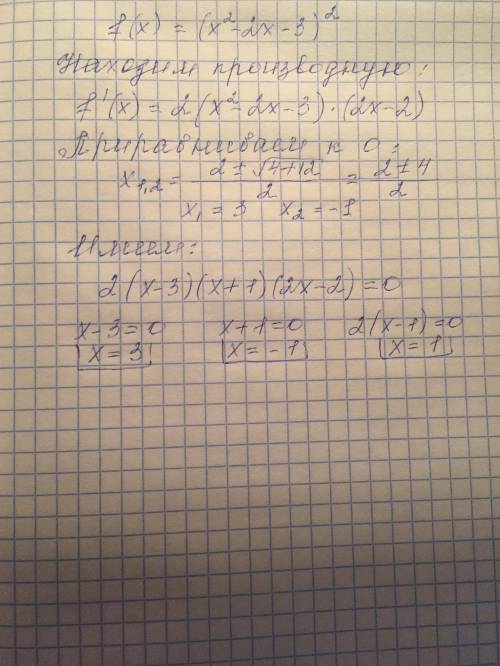 f(x) = (x²-2x-3)²
Находим производную:
f'(x) = 2(x²-2x-3)·(2x-2)
Приравниваем к 0:
x₁,₂ = (2 ± √4+12)/2 = (2 ± 4)/2
x₁ = 3 x₂ = -1
Имеем:
2(x-3)(x+1)(2x-2)=0
x-3=0 x+1=0 2(x-1)=0
x=3 x=-1 x=1